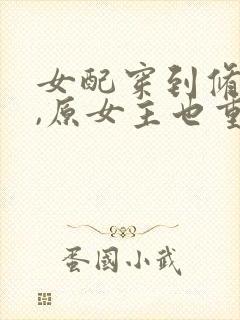 女配穿到修
,原女主也重
蛋国小武